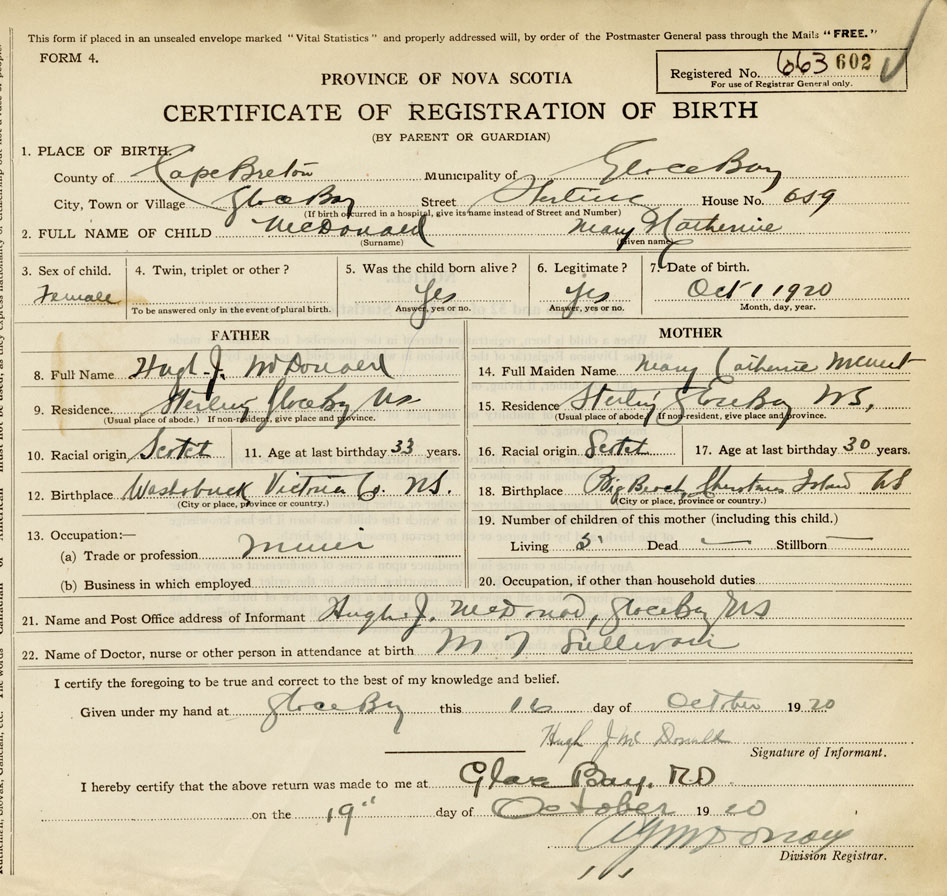 This form if placed in an unsealed envelope marked "Vital Statistics" and properly addressed will, by order of the Postmaster General pass through the Mails "FREE."
FORM 4.
Registered No. 663 602
For use of Registrar General only.
PROVINCE OF NOVA SCOTIA
CERTIFICATE OF REGISTRATION OF BIRTH
(BY PARENT OR GUARDIAN)
1. PLACE OF BIRTH
County of Cape Breton Municipality of Glace Bay
City, Town or Village Glace Bay Street Sterling House No. 659
(If birth occurred in a hospital, give its name instead of Street and Number)
2. FULL NAME OF CHILD McDonald Mary Katherine
(Surname) (Given name)
3. Sex of child. 4. Twin, triplet or other? 5. Was the child born alive? 6. Legitimate? 7. Date of birth.
Female Yes Yes Oct 1 1920
To be answered only in the event of plural birth. Answer, yes or no. Answer, yes or no. Month, day, year.
FATHER
8. Full Name Hugh J. McDonald
9. Residence Sterling Glace Bay NS
(Usual place of abode.) If non-resident, give place and province.
10. Racial origin Scotch 11. Age at last birthday 33 years.
12. Birthplace Washabuck Victoria Co. NS.
(City or place, province or country.)
13. Occupation:—
(a) Trade or profession Miner
(b) Business in which employed
MOTHER
14. Full Maiden Name Mary Catherine
15. Residence Sterling Glace Bay NS,
(Usual place of abode.) If non-resident, give place and province.
16. Racial origin Scotch 17. Age at last birthday 30 years.
18. Birthplace Big Beach, Christmas Island NS
(City or place, province or country.)
19. Number of children of this mother (including this child.)
Living 5 Dead — Stillborn —
20. Occupation, if other than household duties
21. Name and Post Office address of Informant Hugh J. McDonald, Glace Bay NS
22. Name of Doctor, nurse or other person in attendance at birth M T Sullivan
I certify the foregoing to be true and correct to the best of my knowledge and belief.
Given under my hand at Glace Bay this 16 day of October 1920
Hugh J McDonald
Signature of Informant.
I hereby certify that the above return was made to me at Glace Bay.
on the 19" day of October 1920
Division Registrar.